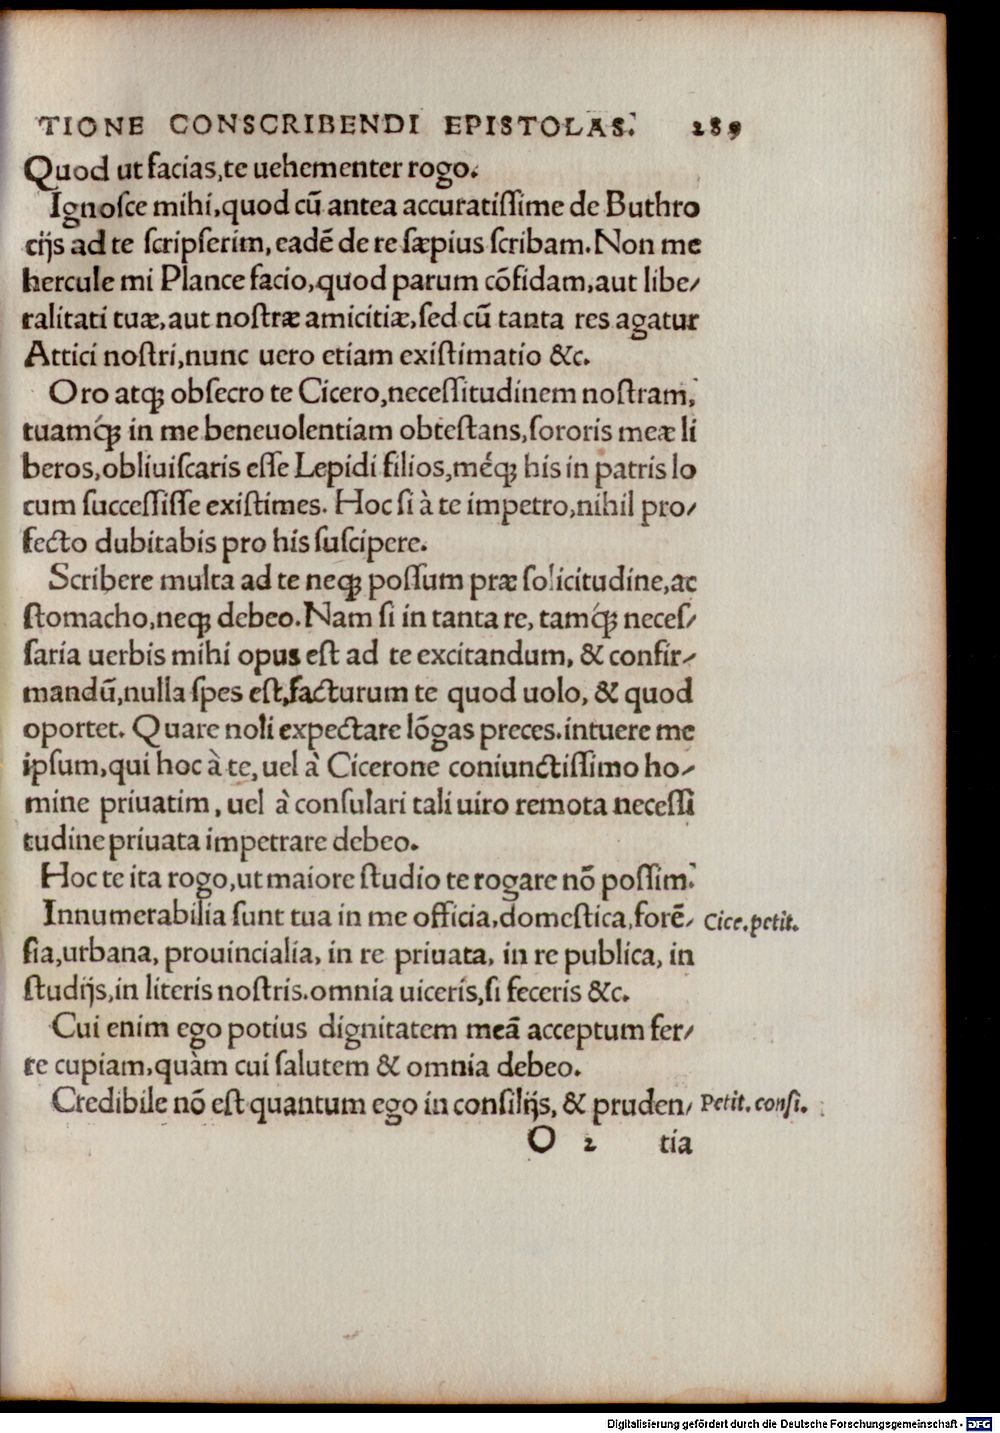 TIONE CONSCRIBENDI EPISTOLAS. 289
Quod ut facias,te uehementer rogo.
Ignoſce mihi,quod cū antea accuratiſſime de Buthro
tijs ad te ſcripſerim, eadē de re ſæpius ſcribam. Non me
hercule mi Plance facio,quod parum cōfidam,aut libe/
ralitati tuæ,aut noſtræ amicitiæ,ſed cū tanta res agatur
Attici noſtri,nunc uero etiam exiſtimatio &c.
Oro atq; obſecro te Cicero,neceſſitudinem noſtram,
tuamq́; in me beneuolentiam obteſtans,ſororis meæ li
beros,obliuiſcaris eſſe Lepidi filios,méq; his in patris lo
cum ſucceſſiſſe exiſtimes. Hoc ſi à te impetro,nihil pro/
fecto dubitabis pro his ſuſcipere.
Scribere multa ad te neq; poſſum præ ſolicitudine,ac
ſtomacho,neq; debeo. Nam ſi in tanta re, tamq́; neceſ/
ſaria uerbis mihi opus eſt ad te excitandum, & confir/
mandū,nulla ſpes eſt,facturum te quod uolo, & quod
oportet. Quare noli expectare lōgas preces.intuere me
ipſum,qui hoc à te, uel à Cicerone coniunctiſſimo ho/
mine priuatim, uel à conſulari tali uiro remota neceſſi
tudine priuata impetrare debeo.
Hoc te ita rogo,ut maiore ſtudio te rogare nō poſſim.
Innumerabilia ſunt tua in me officia,domeſtica,forē/ Cice.petit.
ſia,urbana, prouincialia, in re priuata, in re publica, in
ſtudijs,in literis noſtris.omnia uiceris,ſi feceris &c.
Cui enim ego potius dignitatem meā acceptum fer/
re cupiam,quàm cui ſalutem & omnia debeo.
Credibile nō eſt quantum ego in conſilijs, & pruden/ Petit. conſi.
O 2 tia
Digitalisierung gefördert durch die Deutsche Forschungsgemeinschaft - DFG